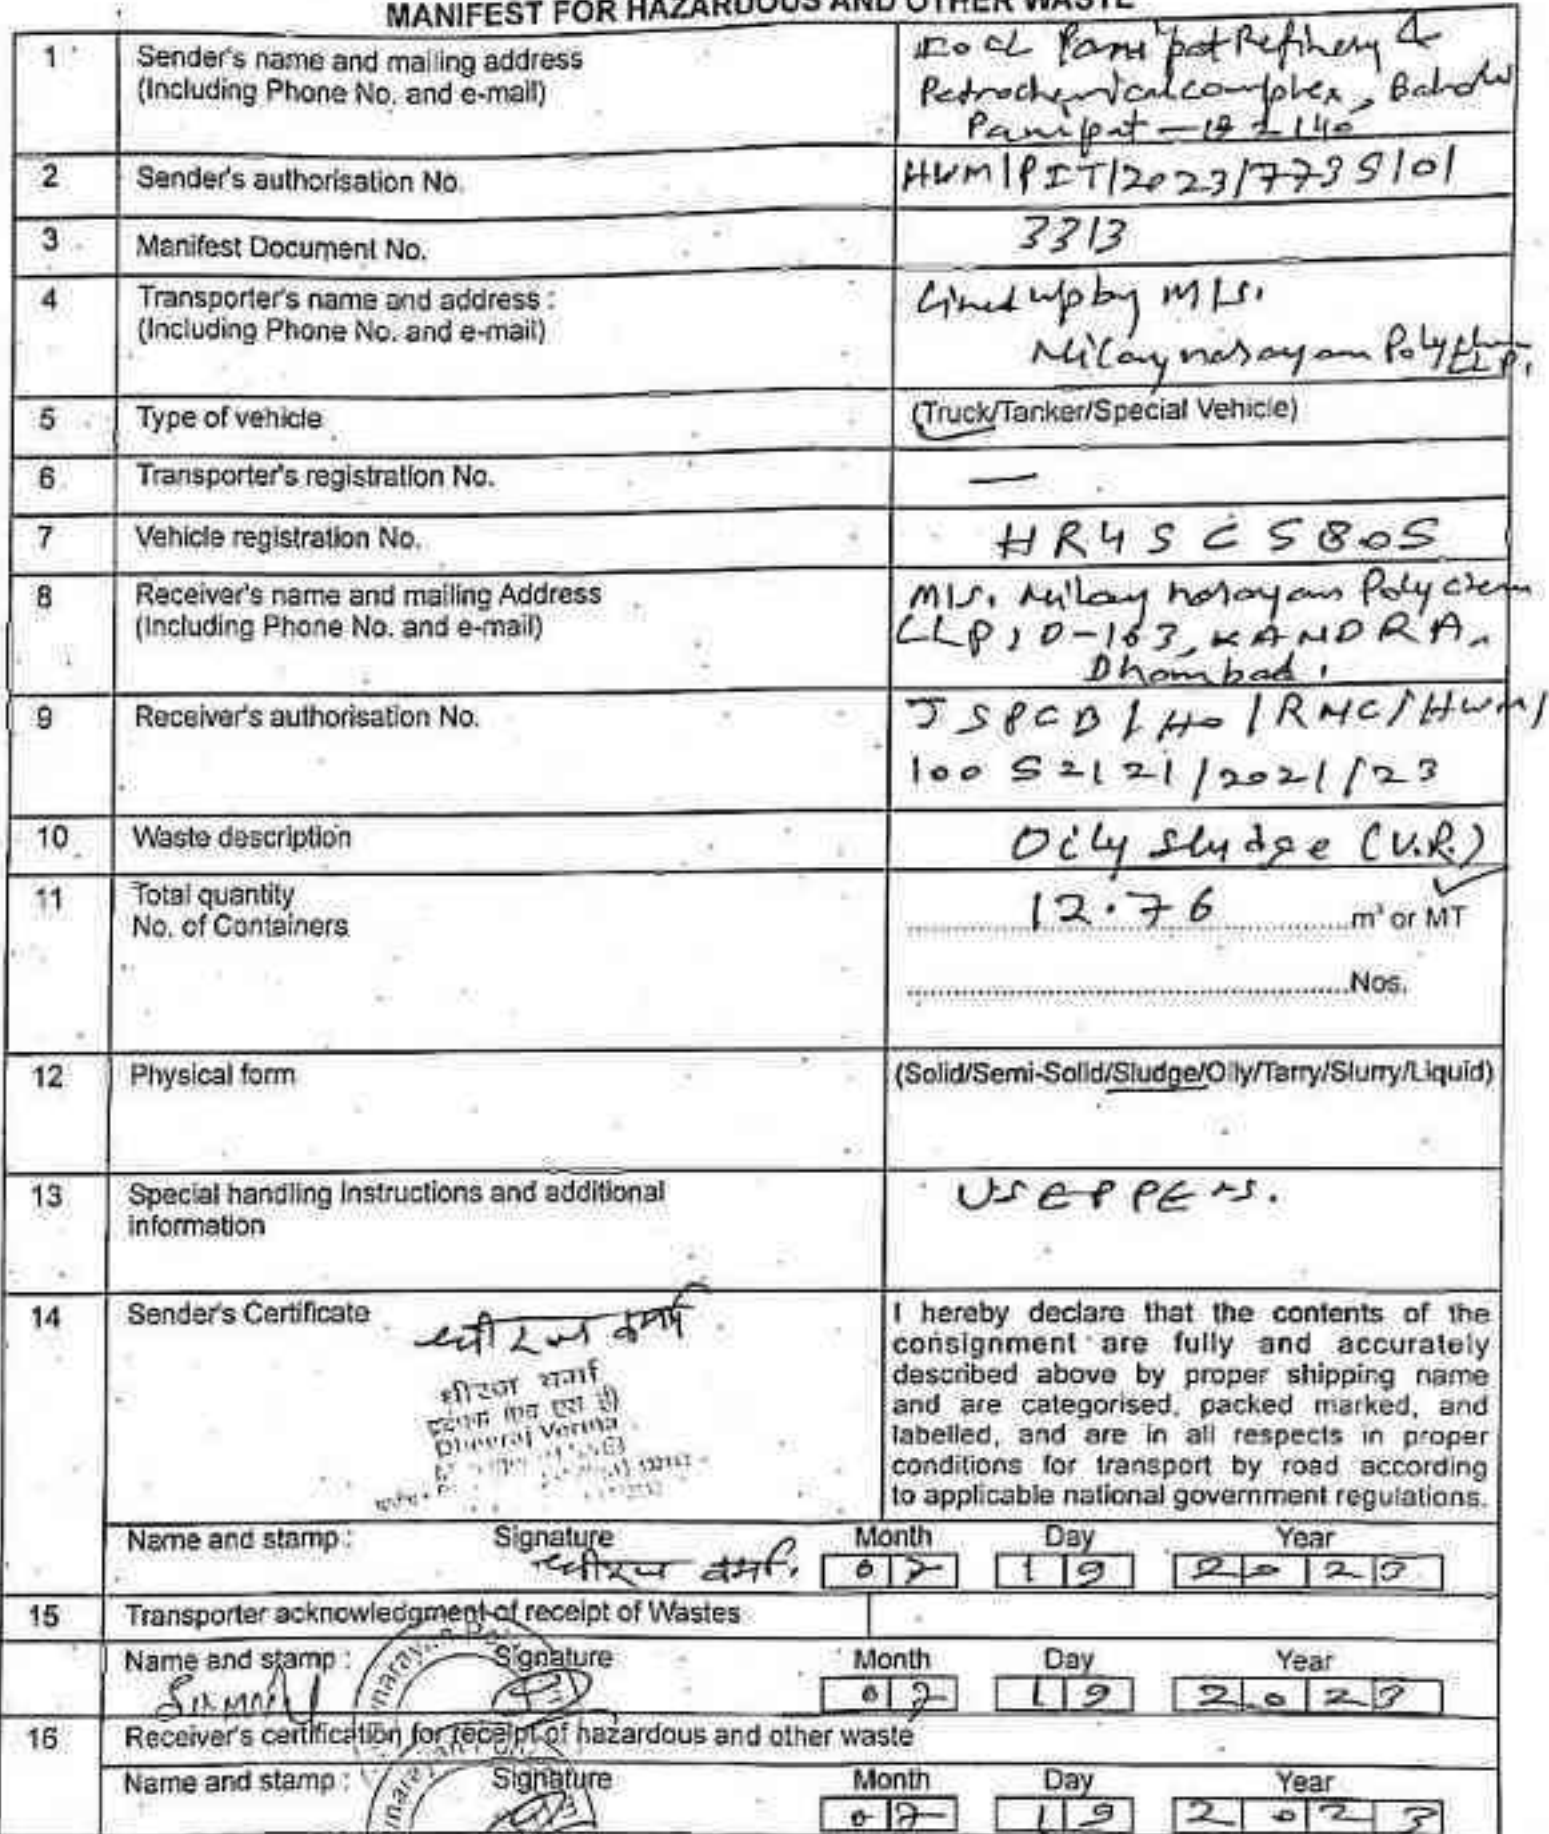 MANIFEST FOR HAZARDOUS AND OTHER WASTE
1 Sender's name and mailing address
(Including Phone No. and e-mail)
IOCL Panipat Refinery &
Petrochemical complex, Baholi
Panipat - 132140
2 Sender's authorisation No. HWM/PIT/2023/7735101
3 Manifest Document No. 3313
4 Transporter's name and address :
(Including Phone No. and e-mail)
Lined up by M/s.
Nilay narayan Polychem
LLP.
5 Type of vehicle (Truck/Tanker/Special Vehicle)
6 Transporter's registration No. —
7 Vehicle registration No. HR45C5805
8 Receiver's name and mailing Address
(Including Phone No. and e-mail)
M/s. Nilay narayan Polychem
LLP, D-163, KANDRA,
Dhanbad.
9 Receiver's authorisation No. JSPCB/HO/RNC/HWM/
10052121/2021/23
10 Waste description Oily Sludge (V.R.)
11 Total quantity 12.76 m³ or MT
No. of Containers
Nos.
12 Physical form (Solid/Semi-Solid/Sludge/Oily/Tarry/Slurry/Liquid)
13 Special handling instructions and additional
information
USE PPE's.
14 Sender's Certificate धीरज वर्मा
धीरज वर्मा
Dheeraj Verma
I hereby declare that the contents of the
consignment are fully and accurately
described above by proper shipping name
and are categorised, packed marked, and
labelled, and are in all respects in proper
conditions for transport by road according
to applicable national government regulations.
Name and stamp : Signature Month Day Year
धीरज वर्मा. 07 19 2023
15 Transporter acknowledgment of receipt of Wastes
Name and stamp : Signature Month Day Year
07 19 2023
16 Receiver's certification for receipt of hazardous and other waste
Name and stamp : Signature Month Day Year
07 19 2023